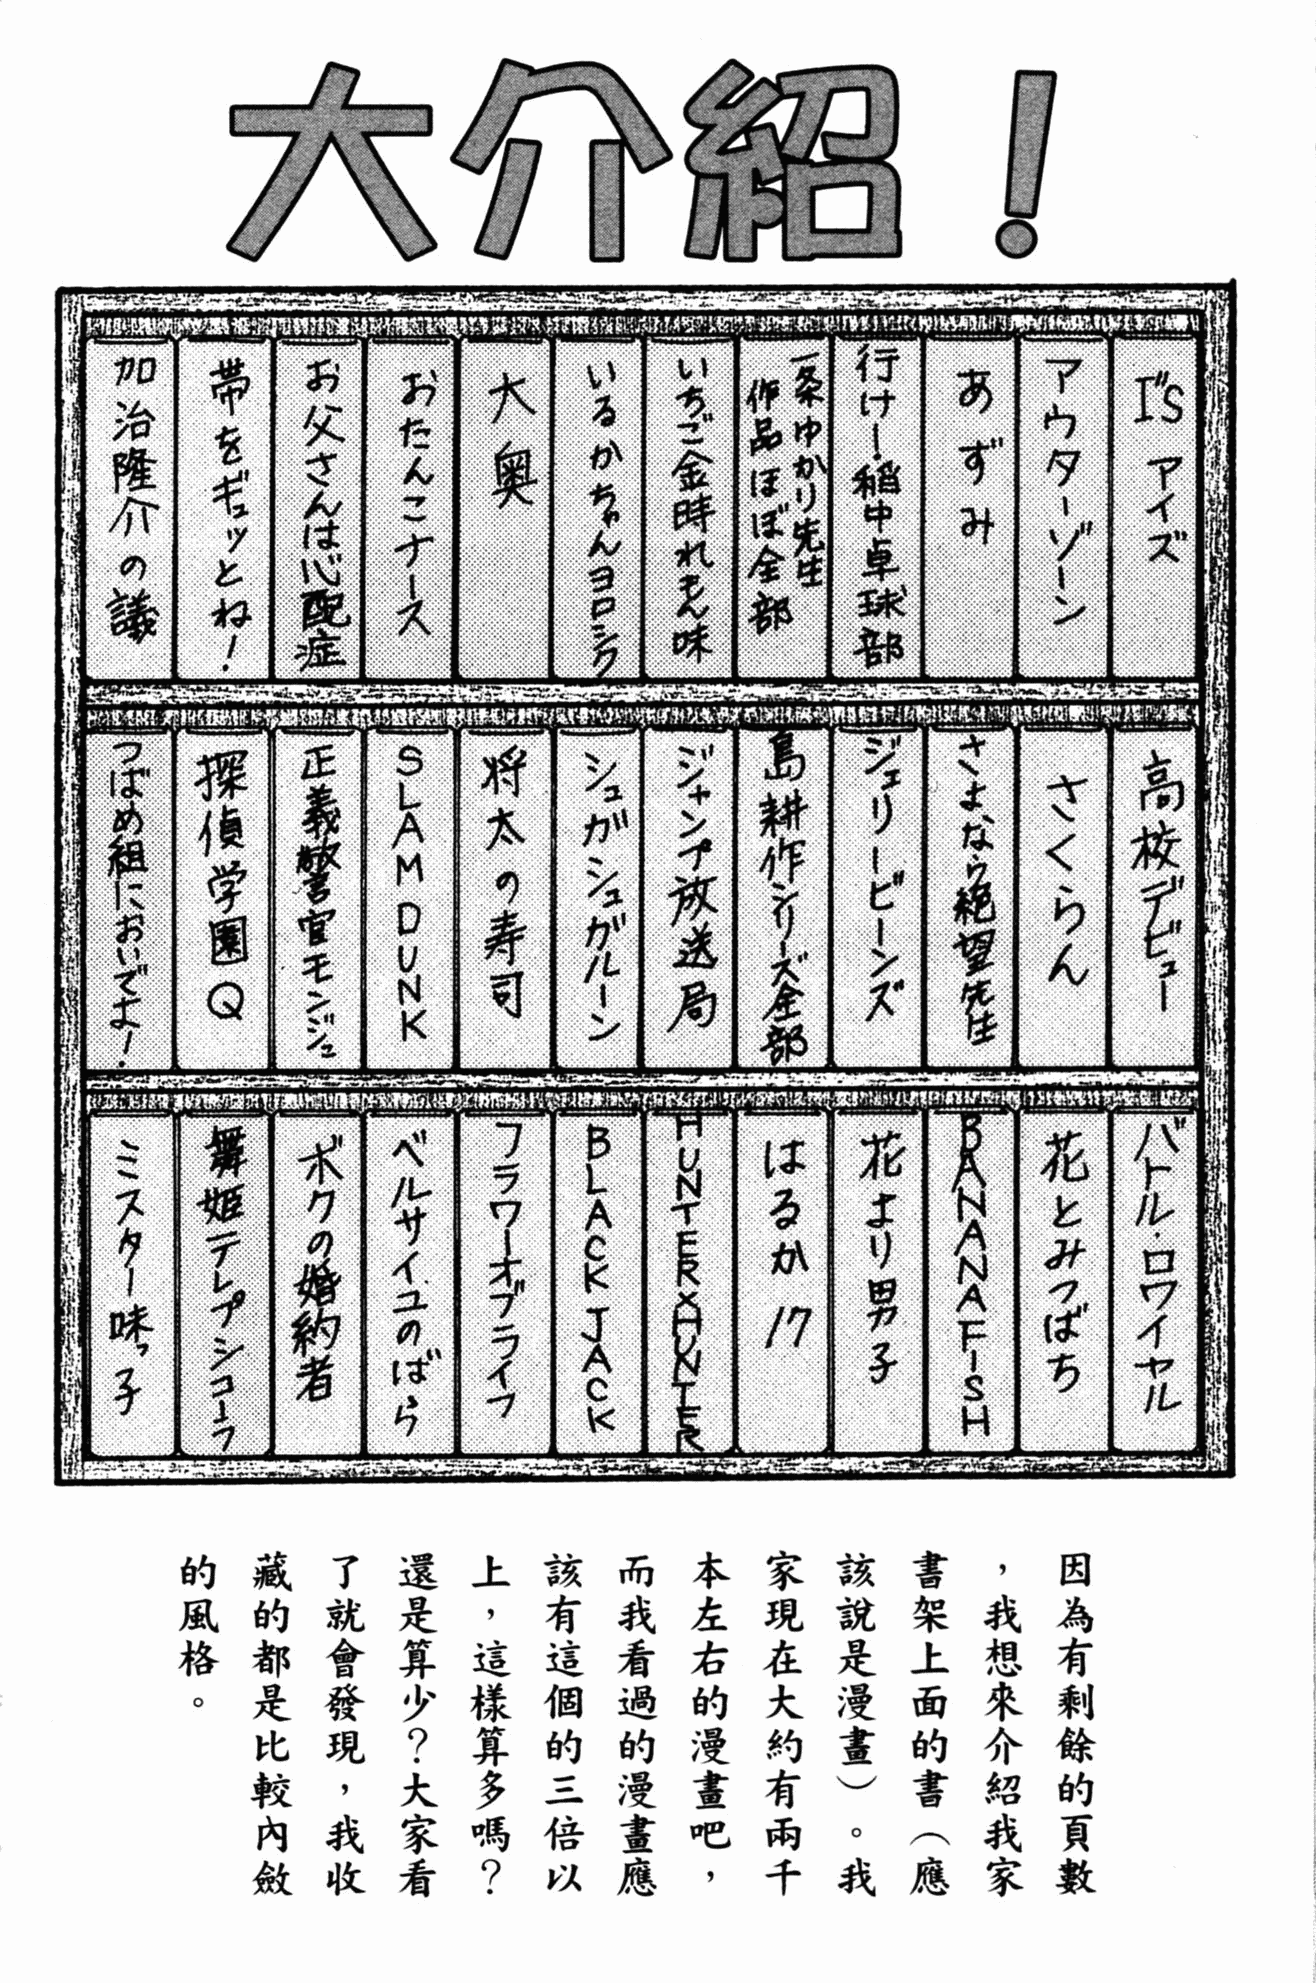 大介紹！
I"S アイズ
アウターゾーン
あずみ
行け!稲中卓球部
一条ゆかり先生
作品ほぼ全部
いちご金時れもん味
いるかちゃんヨロシク
大奥
おたんこナース
お父さんは心配症
帯をギュッとね!
加治隆介の議
高校デビュー
さくらん
さよなら絶望先生
ジェリービーンズ
島耕作シリーズ全部
ジャンプ放送局
シュガシュガルーン
将太の寿司
SLAM DUNK
正義警官モンジュ
探偵学園Q
つばめ組においでよ!
バトル・ロワイヤル
花とみつばち
BANANAFISH
花より男子
はるか17
HUNTER×HUNTER
BLACK JACK
フラワーオブライフ
ベルサイユのばら
ボクの婚約者
舞姫テレプシコーラ
ミスター味っ子
因為有剩餘的頁數
，我想來介紹我家
書架上面的書（應
該說是漫畫）。我
家現在大約有兩千
本左右的漫畫吧，
而我看過的漫畫應
該有這個的三倍以
上，這樣算多嗎？
還是算少？大家看
了就會發現，我收
藏的都是比較內斂
的風格。